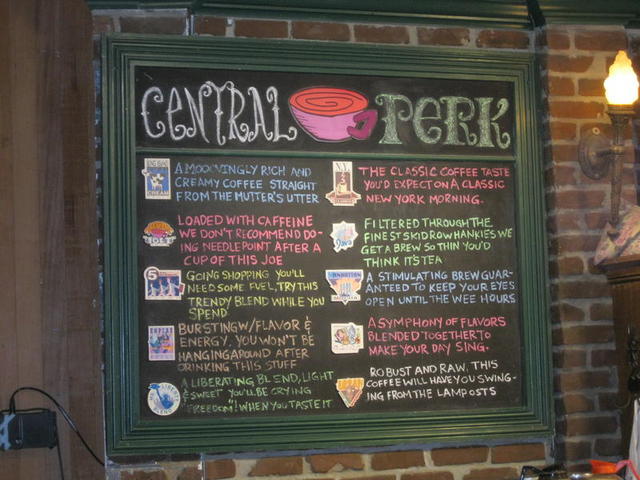 CENTRAL PERK
A MOOOVINGLY RICH AND
CREAMY COFFEE STRAIGHT
FROM THE MUTTER'S UTTER
LOADED WITH CAFFEINE
WE DON'T RECOMMEND DO-
ING NEEDLEPOINT AFTER A
CUP OF THIS JOE
5
GOING SHOPPING YOU'LL
NEED SOME FUEL, TRY THIS
TRENDY BLEND WHILE YOU
SPEND
EMPIRE
BURSTING W/FLAVOR &
ENERGY. YOU WON'T BE
HANGING AROUND AFTER
DRINKING THIS STUFF
A LIBERATING BLEND, LIGHT
& SWEET YOU'LL BE CRYING
"FREEDOM"! WHEN YOU TASTE IT
N.Y.
THE CLASSIC COFFEE TASTE
YOU'D EXPECT ON A CLASSIC
NEW YORK MORNING.
Java
FILTERED THROUGH THE
FINEST SKIDROW HANKIES WE
GET A BREW SO THIN YOU'D
THINK IT'S TEA
MANHATTAN
A STIMULATING BREW GUAR-
ANTEED TO KEEP YOUR EYES
OPEN UNTIL THE WEE HOURS
A SYMPHONY OF FLAVORS
BLENDED TOGETHER TO
MAKE YOUR DAY SING.
ROBUST AND RAW, THIS
COFFEE WILL HAVE YOU SWING-
ING FROM THE LAMPOSTS